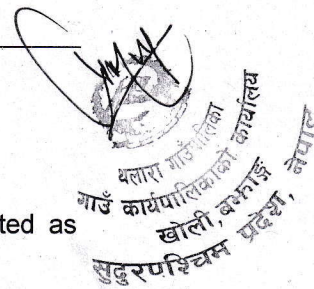 थलारा गाउँपालिका
गाउँ कार्यपालिकाको कार्यालय
खोली, बझाङ्ग
सुदुरपश्चिम प्रदेश, नेपाल
ted as